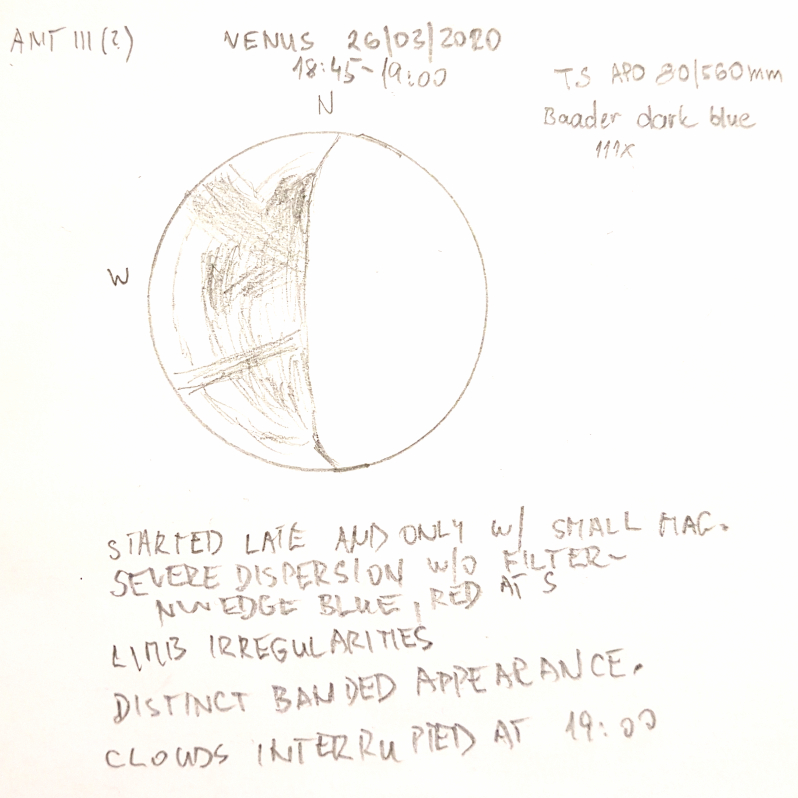 ANT III (?)
VENUS 26/03/2020
18:45-19:00
TS APO 80/560mm
Baader dark blue
111x
N
W
STARTED LATE AND ONLY W/ SMALL MAG.
SEVERE DISPERSION W/O FILTER-
NW EDGE BLUE, RED AT S
LIMB IRREGULARITIES
DISTINCT BANDED APPEARANCE.
CLOUDS INTERRUPTED AT 19:00